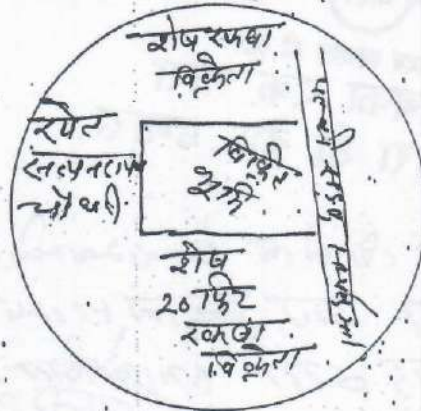 शेष रकबा
विक्रेता
खेत
सत्यनारायण
चौधरी
विक्रीत
भूमि
शेष
20 फिट
रकबा
विक्रेता